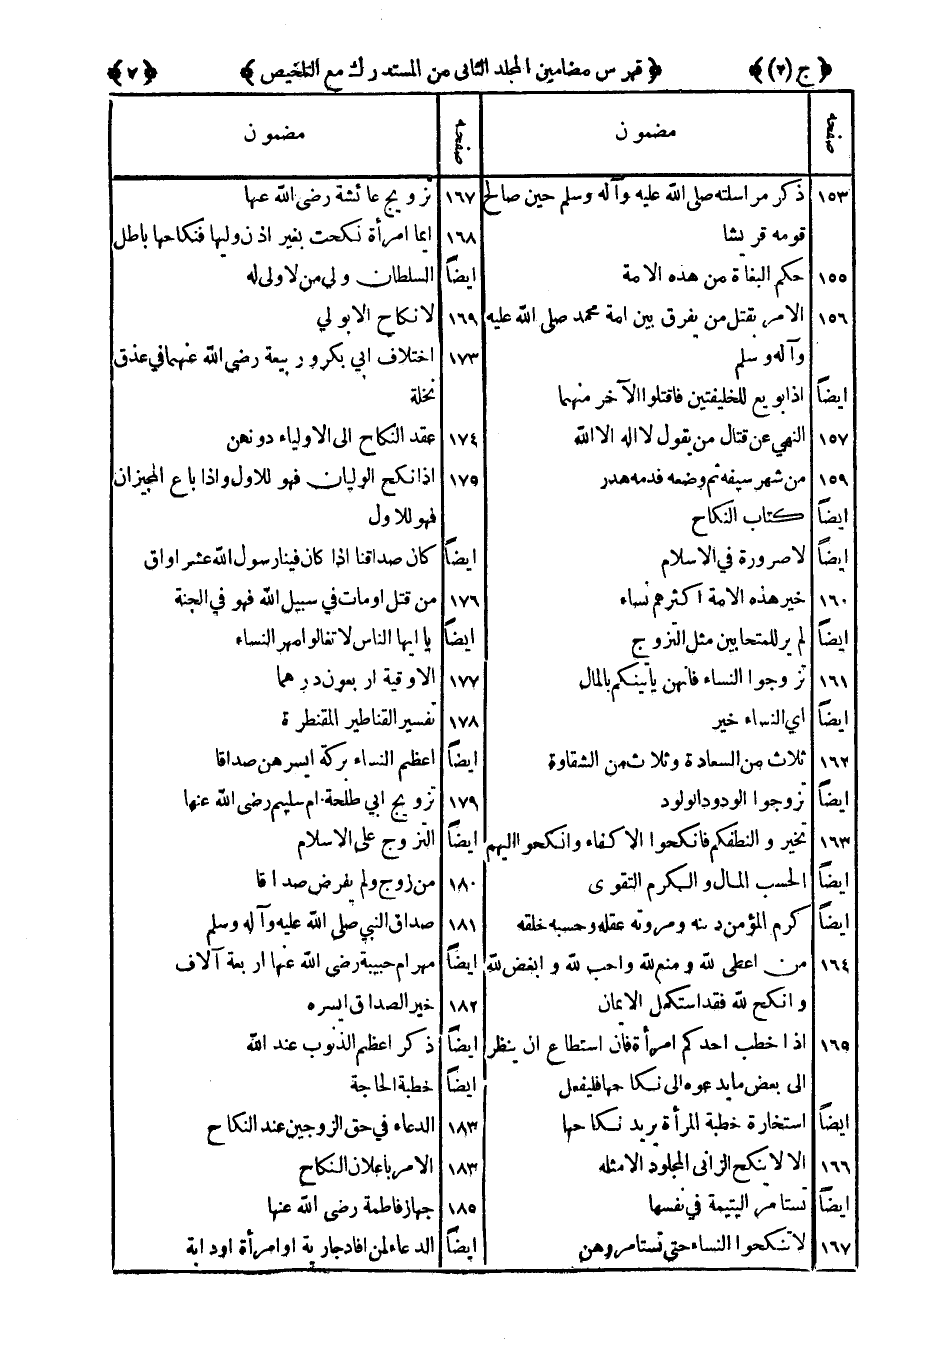 ﴿ج (٢)﴾ ﴿فهرس مضامين المجلد الثانى من المستدرك مع التلخيص﴾ ﴿٧﴾
صفحه مضمون
١٥٣ ذكر مراسلته صلى الله عليه وآله وسلم حين صالح
قومه قريشا
١٥٥ حكم البغاة من هذه الامة
١٥٦ الامر بقتل من يفرق بين امة محمد صلى الله عليه
وآله وسلم
ايضاً اذا بويع للخليفتين فاقتلوا الآخر منهما
١٥٧ النهي عن قتال من يقول لا اله الا الله
١٥٩ من شهر سيفه ثم وضعه فدمه هدر
ايضاً كتاب النكاح
ايضاً لا صرورة في الاسلام
١٦٠ خير هذه الامة اكثرهم نساء
ايضاً لم ير للمتحابين مثل التزوج
١٦١ تزوجوا النساء فانهن يأتينكم بالمال
ايضاً اي النساء خير
١٦٢ ثلاث من السعادة وثلاث من الشقاوة
ايضاً تزوجوا الودود الولود
١٦٣ تخيروا لنطفكم فانكحوا الاكفاء وانكحوا اليهم
ايضاً الحسب المال والكرم التقوى
ايضاً كرم المؤمن دينه ومروته عقله وحسبه خلقه
١٦٤ من اعطى لله ومنع لله واحب لله وابغض لله
وانكح لله فقد استكمل الايمان
١٦٥ اذا خطب احدكم امرأة فان استطاع ان ينظر
الى بعض ما يدعوه الى نكاحها فليفعل
ايضاً استخارة خطبة المرأة يريد نكاحها
١٦٦ الا لا ينكح الزانى المجلود الا مثله
ايضاً تستامر اليتيمة في نفسها
١٦٧ لا تنكحوا النساء حتى تستامروهن
صفحه مضمون
١٦٧ تزويج عائشة رضى الله عنها
١٦٨ ايما امرأة نكحت بغير اذن وليها فنكاحها باطل
ايضاً السلطان ولي من لا ولى له
١٦٩ لا نكاح الا بولي
١٧٣ اختلاف ابي بكر وربيعة رضى الله عنهما في عذق
نخلة
١٧٤ عقد النكاح الى الاولياء دونهن
١٧٥ اذا نكح الوليان فهو للاول واذا باع المجيزان
فهو للاول
ايضاً كان صداقنا اذا كان فينا رسول الله عشر اواق
١٧٦ من قتل او مات في سبيل الله فهو في الجنة
ايضاً يا ايها الناس لا تغالوا مهر النساء
١٧٧ الاوقية اربعون درهما
١٧٨ تفسير القناطير المقنطرة
ايضاً اعظم النساء بركة ايسرهن صداقا
١٧٩ تزويج ابي طلحة ام سليم رضى الله عنها
ايضاً التزوج على الاسلام
١٨٠ من زوج ولم يفرض صداقا
١٨١ صداق النبي صلى الله عليه وآله وسلم
ايضاً مهر ام حبيبة رضى الله عنها اربعة آلاف
١٨٢ خير الصداق ايسره
ايضاً ذكر اعظم الذنوب عند الله
ايضاً خطبة الحاجة
١٨٣ الدعاء في حق الزوجين عند النكاح
١٨٣ الامر باعلان النكاح
١٨٥ جهاز فاطمة رضى الله عنها
ايضاً الدعاء لمن افاد جارية او امرأة او دابة